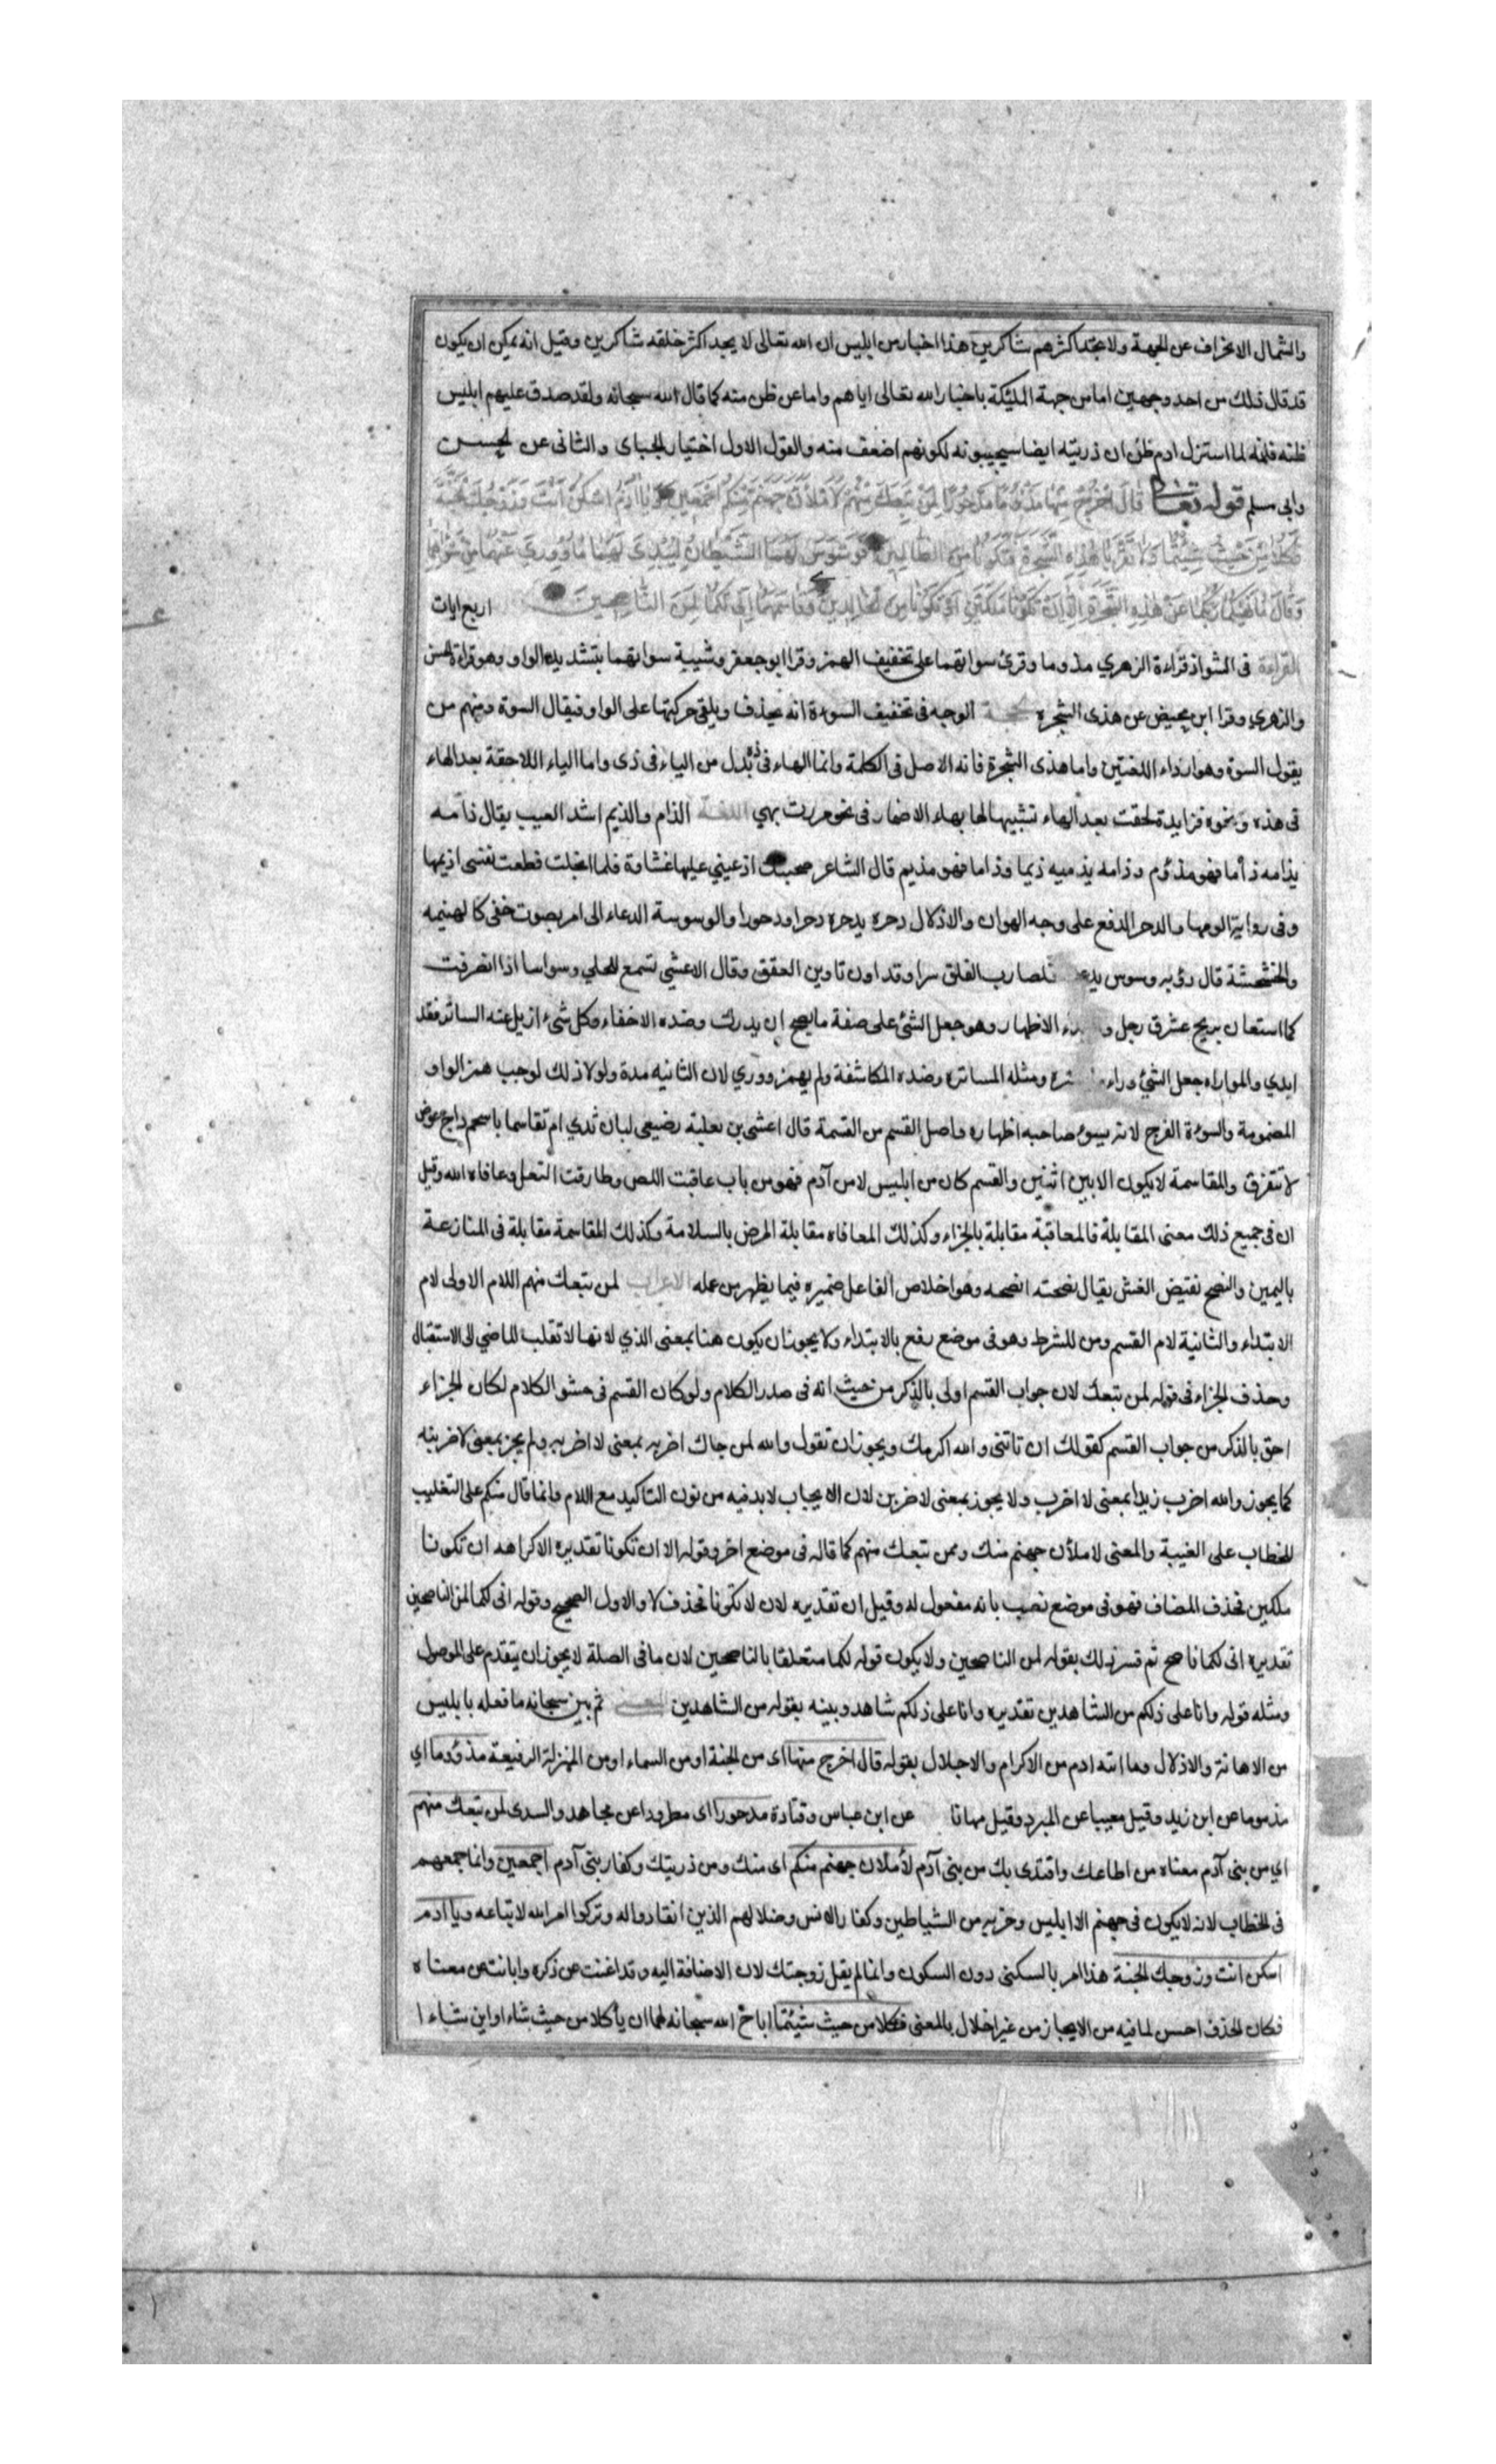 والشمال الانحراف عن الجهة ولا تجد اكثرهم شاكرين هذا اخبار من ابليس ان الله تعالى لا يجد اكثر خلقه شاكرين وقيل انه يمكن ان يكون
قد قال ذلك من احد وجهين اما من جهة المليكة باخبار الله تعالى اياهم واما عن ظن منه كما قال الله سبحانه ولقد صدق عليهم ابليس
ظنه فانه لما استنزل ادم ظن ان ذريته ايضا سيجيبونه لكونهم اضعف منه والقول الاول اختيار الجباى والثانى عن الحسن
وابى مسلم قوله تعالى قال اخرج منها مذءوما مدحورا لمن تبعك منهم لاملأن جهنم منكم اجمعين ويا ادم اسكن انت وزوجك الجنة
فكلا من حيث شيتما ولا تقربا هذه الشجرة فتكونا من الظالمين فوسوس لهما الشيطان ليبدى لهما ما وورى عنهما من سوآتهما
وقال ما نهيكما ربكما عن هذه الشجرة الا ان تكونا ملكين او تكونا من الخالدين وقاسمهما انى لكما لمن الناصحين اربع ايات
القراءة فى الشواذ قراءة الزهري مذوما وقرئ سواتهما على تخفيف الهمز وقرا ابو جعفر وشيبة سواتهما بتشديد الواو وهو قراءة الحسن
والزهري وقرا ابن محيض عن هذى الشجره الحجة الوجه فى تخفيف السوءة انه يحذف ويلقى حركتها على الواو فيقال السوة ومنهم من
يقول السوة وهو ارداء اللغتين واما هذى الشجرة فانه الاصل فى الكلمة وانما الهاء فى ذه بدل من الياء فى ذى واما الياء اللاحقة بعد الهاء
فى هذه ونحوه فزايدة لحقت بعد الهاء تشبيها لها بهاء الاضمار فى نحو مررت بهي اللغة الذام والذيم اشد العيب يقال ذامه
يذامه ذأما فهو مذؤم وذامه يذميه ذيما وذاما فهو مذيم قال الشاعر صحبتك اذ عيني عليها غشاوة فلما انجلت قطعت نفسى اذيمها
وفى رواية الومها والدحر الدفع على وجه الهوان والاذلال دحره يدحره دحرا ودحورا والوسوسة الدعاء الى امر بصوت خفى كالهينمه
والخشخشة قال رؤبه وسوس يدعو مخلصا رب الفلق سرا وقد اون تاوين العقق وقال الاعشي تسمع للحلي وسواسا اذا انصرفت
كما استعان بريح عشرق رجل و الابداء الاظهار وهو جعل الشئ على صفة ما يصح ان يدرك وضده الاخفاء وكل شىء ازيل عنه الساتر فقد
ابدي والمواراه جعل الشئ وراء ما يستره ومثله المساترة وضده المكاشفة ولم يهمز ووري لان الثانيه مدة ولولا ذلك لوجب همز الواو
المضمومة والسوءة الفرج لانه يسوء صاحبه اظهاره واصل القسم من القسمة قال اعشى بن ثعلبة رضيعى لبان ثدي ام تقاسما باسحم داج عوض
لا نتفرق والمقاسمة لا يكون الا بين اثنين والقسم كان من ابليس لا من آدم فهو من باب عاقبت اللص وطارقت النعل وعافاه الله وقيل
ان فى جميع ذلك معنى المقابلة فالمعاقبة مقابلة بالجزاء وكذلك المعافاه مقابلة المرض بالسلامة وكذلك المقاسمة مقابلة فى المنازعة
باليمين والنصح نقيض الغش يقال نصحته انصحه وهو اخلاص الفاعل ضميره فيما يظهر من عمله الاعراب لمن تبعك منهم اللام الاولى لام
الابتداء والثانية لام القسم ومن للشرط وهو فى موضع رفع بالابتداء ولا يجوز ان يكون هنا بمعنى الذي لانها لا تقلب الماضي الى الاستقبال
وحذف الجزاء فى قوله لمن تبعك لان جواب القسم اولى بالذكر من حيث انه فى صدر الكلام ولو كان القسم فى حشو الكلام لكان الجزاء
احق بالذكر من جواب القسم كقولك ان تاتنى والله اكرمك ويجوز ان تقول والله لمن جاك اضربه بمعنى لا اضربه ولم يجز بمعنى لاضربنه
كما يجوز والله اضرب زيدا بمعنى لا اضرب ولا يجوز بمعنى لاضربن لان الايجاب لا بد فيه من نون التاكيد مع اللام وانما قال منكم على التغليب
للخطاب على الغيبة والمعنى لاملأن جهنم منك وممن تبعك منهم كما قاله فى موضع اخر وقوله الا ان تكونا تقديره الا كراهه ان تكونا
ملكين فحذف المضاف فهو فى موضع نصب بانه مفعول له وقيل ان تقديره لان لا تكونا فحذف لا والاول الصحيح وقوله انى لكما لمن الناصحين
تقديره انى لكما ناصح ثم فسر ذلك بقوله لمن الناصحين ولا يكون قوله لكما متعلقا بالناصحين لان ما فى الصلة لا يجوز ان يتقدم على الموصول
ومثله قوله وانا على ذلكم من الشاهدين تقديره وانا على ذلكم شاهد وبينه بقوله من الشاهدين المعنى ثم بين سبحانه ما فعله بابليس
من الاهانة والاذلال وما اتاه ادم من الاكرام والاجلال بقوله قال اخرج منها اى من الجنة او من السماء او من المنزلة الرفيعة مذؤوما اي
مذموما عن ابن زيد وقيل معيبا عن المبرد وقيل مهانا عن ابن عباس وقتادة مدحورا اى مطرودا عن مجاهد والسدى لمن تبعك منهم
اي من بنى آدم معناه من اطاعك واقتدى بك من بنى آدم لأملان جهنم منكم اى منك ومن ذريتك وكفار بنى آدم اجمعين وانما جمعهم
فى الخطاب لانه لا يكون فى جهنم الا ابليس وحزبه من الشياطين وكفار الانس وضلالهم الذين انقادوا له وتركوا امر الله لاتباعه ويا ادم
اسكن انت وزوجك الجنة هذا امر بالسكنى دون السكون وانما لم يقل زوجتك لان الاضافة اليه وقد اغنت عن ذكره وابانت عن معناه
فكان الحذف احسن لما فيه من الايجاز من غير اخلال بالمعنى فكلا من حيث شيئتما اباح الله سبحانه لهما ان يأكلا من حيث شاء او اين شاءا